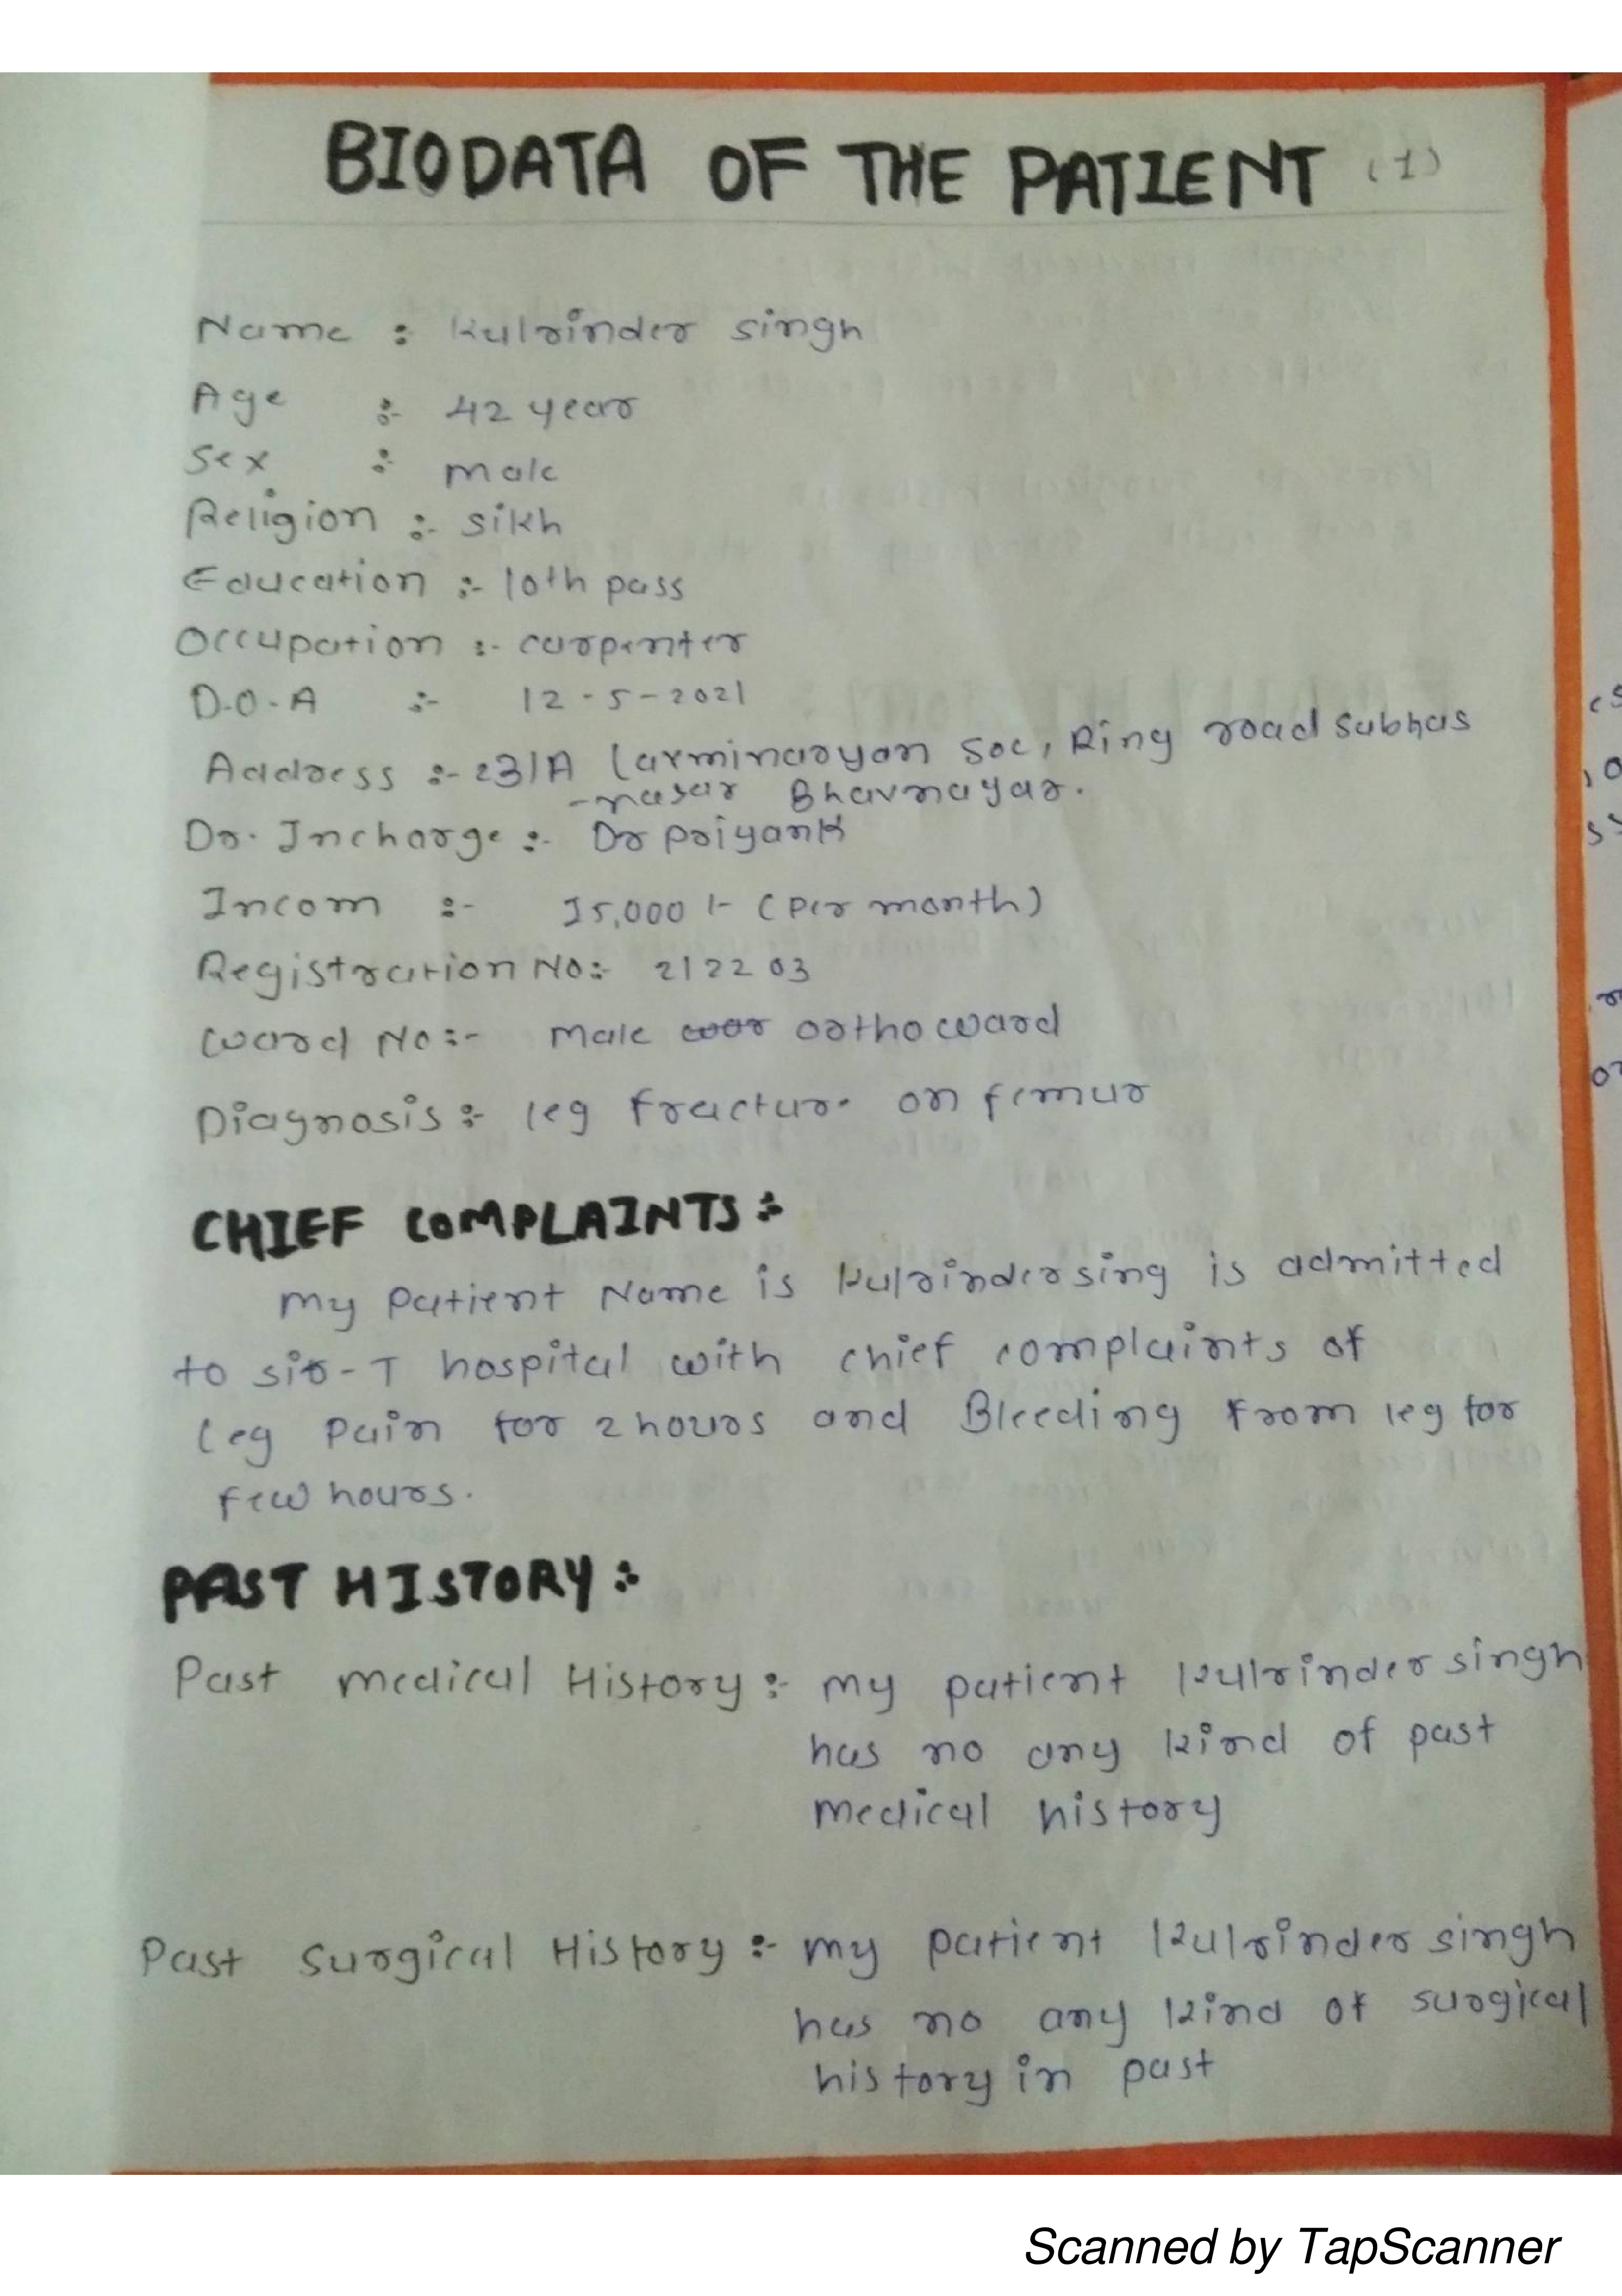 BIODATA OF THE PATIENT (1)
Name : Kulrinder singh
Age :- 42 year
Sex :- male
Religion :- sikh
Education :- 10th pass
Occupation :- carpenter
D.O.A :- 12-5-2021
Address :- 231A Laxminarayan Soc, Ring road Subhas
-nagar Bhavnagar.
Dr. Incharge :- Dr Priyank
Incom :- 15,000 /- (per month)
Registration No:- 212203
Ward No:- Male orthoward
Diagnosis :- leg fracture on femur
CHIEF COMPLAINTS :-
my patient Name is Kulrindersing is admitted
to sir-T hospital with chief complaints of
leg pain for 2 hours and Bleeding from leg for
few hours.
PAST HISTORY :-
Past medical History :- my patient Kulrinder singh
has no any kind of past
medical history
Past Surgical History :- my patient Kulrinder singh
has no any kind of surgical
history in past
Scanned by TapScanner